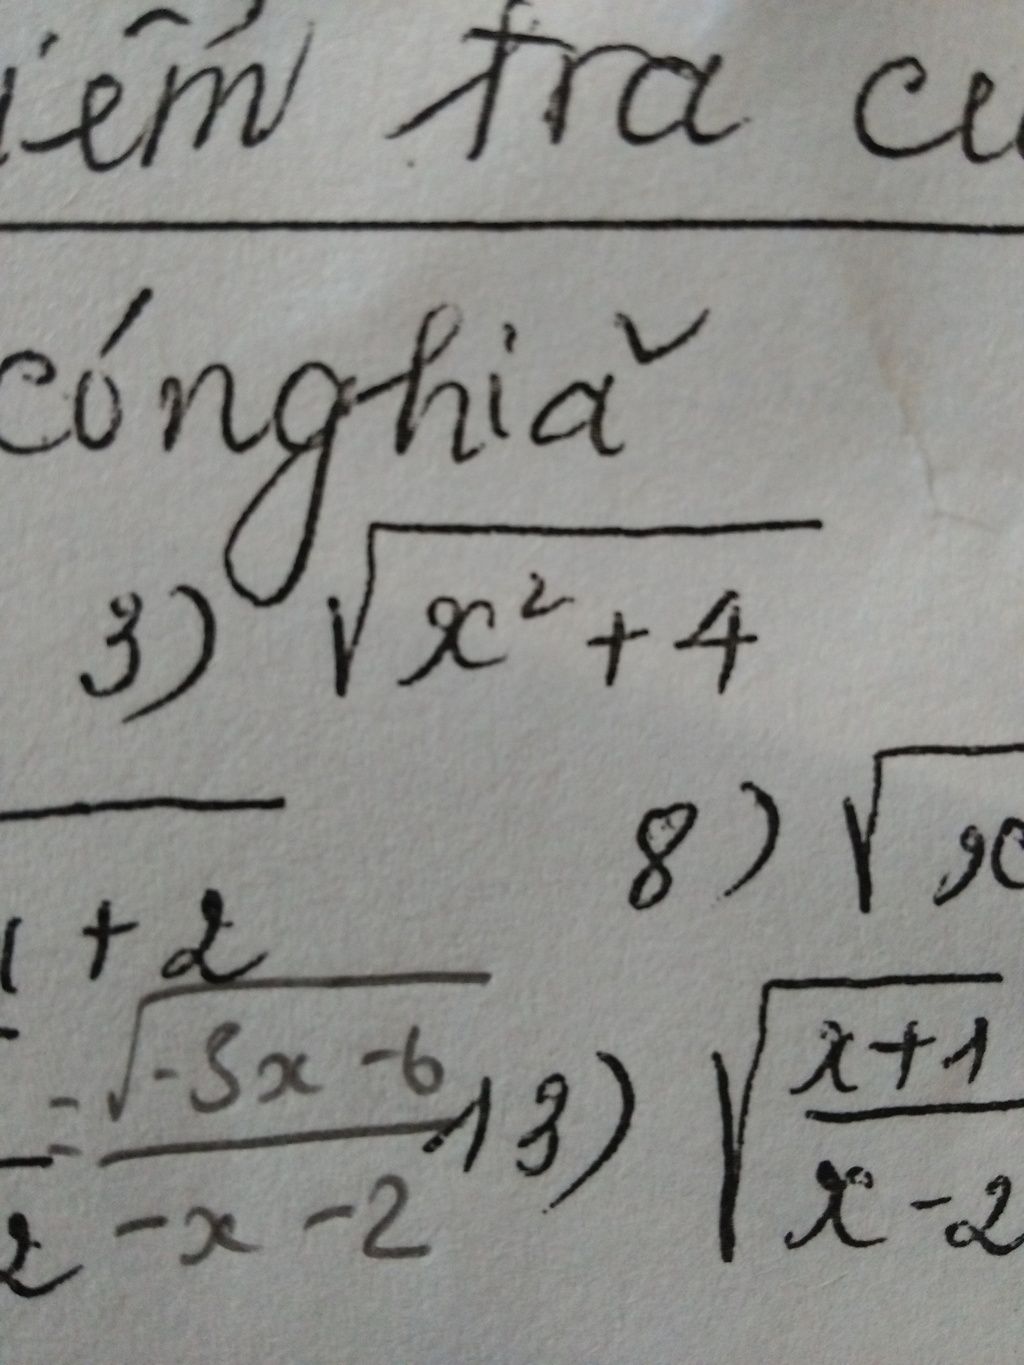 iểm tra cu
có nghĩa
3) √(x² + 4)
8) √x
1 + 2
= √(-3x - 6) / (-x - 2)
13) √((x+1)/(x-2))
2